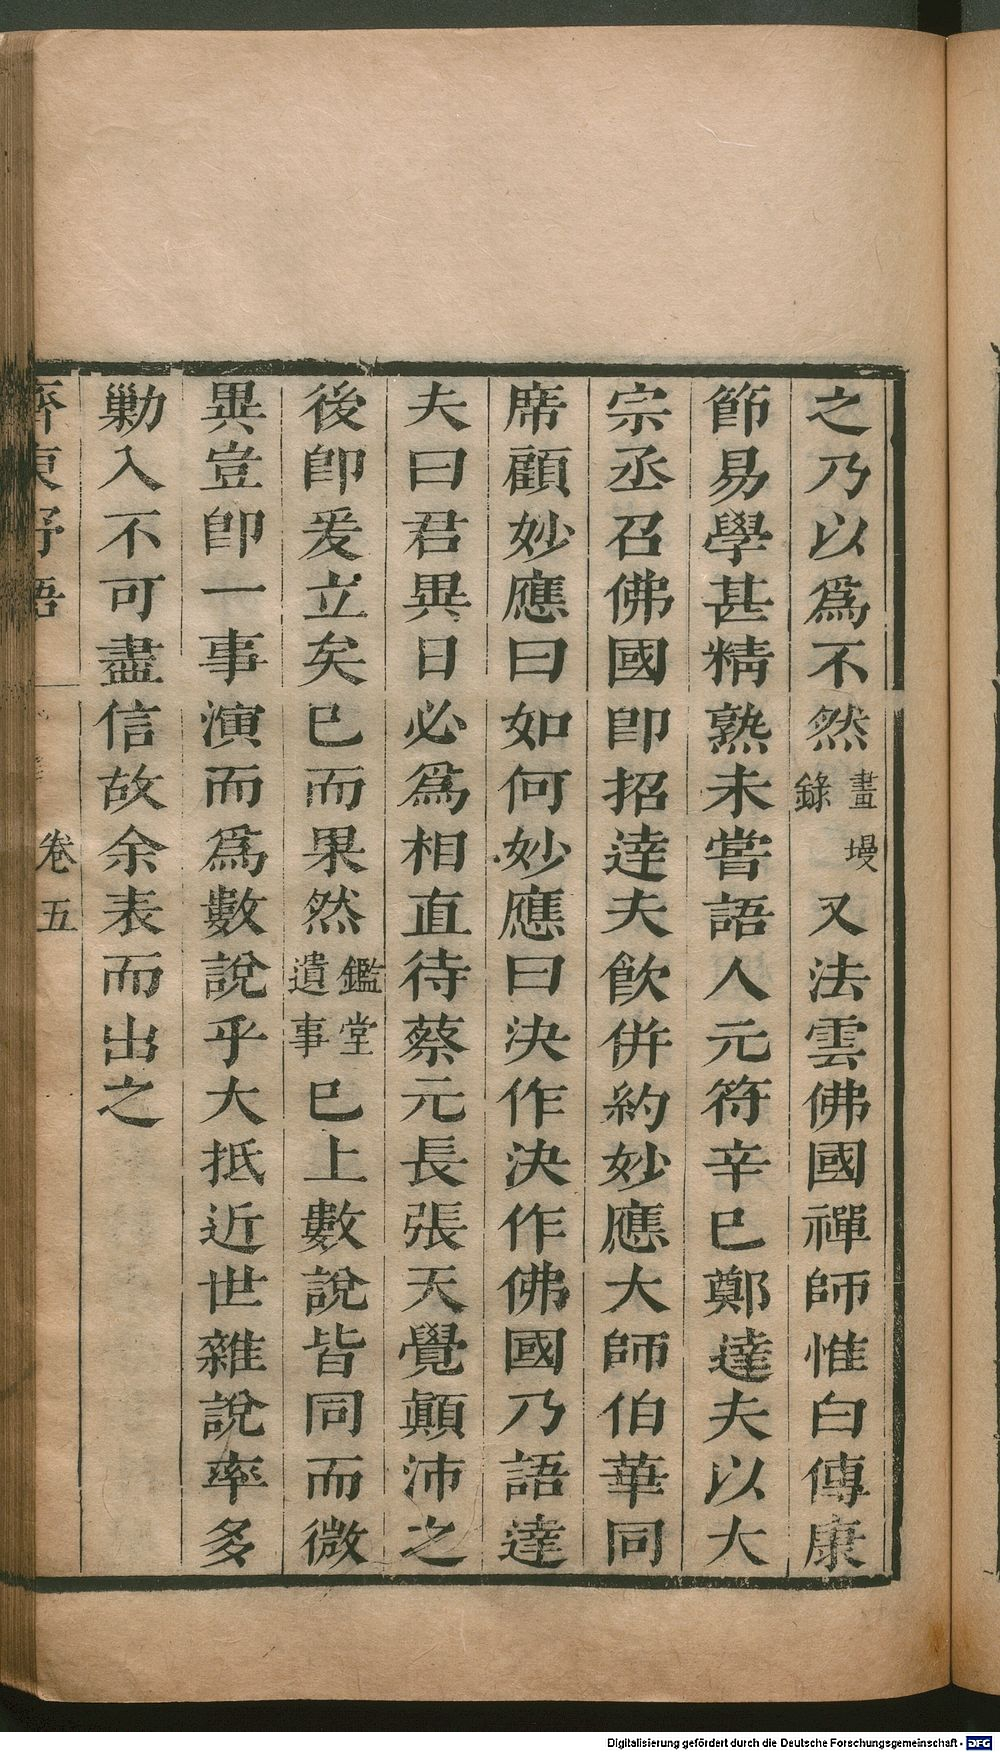 之乃以爲不然畫墁錄又法雲佛國禪師惟白傳康
節易學甚精熟未嘗語人元符辛巳鄭達夫以大
宗丞召佛國卽招達夫飮併約妙應大師伯華同
席顧妙應曰如何妙應曰決作決作佛國乃語達
夫曰君異日必爲相直待蔡元長張天覺顚沛之
後卽爰立矣已而果然鑑堂遺事已上數說皆同而微
異豈卽一事演而爲數說乎大抵近世雜說率多
勦入不可盡信故余表而出之
齊東野語 卷五
Digitalisierung gefördert durch die Deutsche Forschungsgemeinschaft - DFG